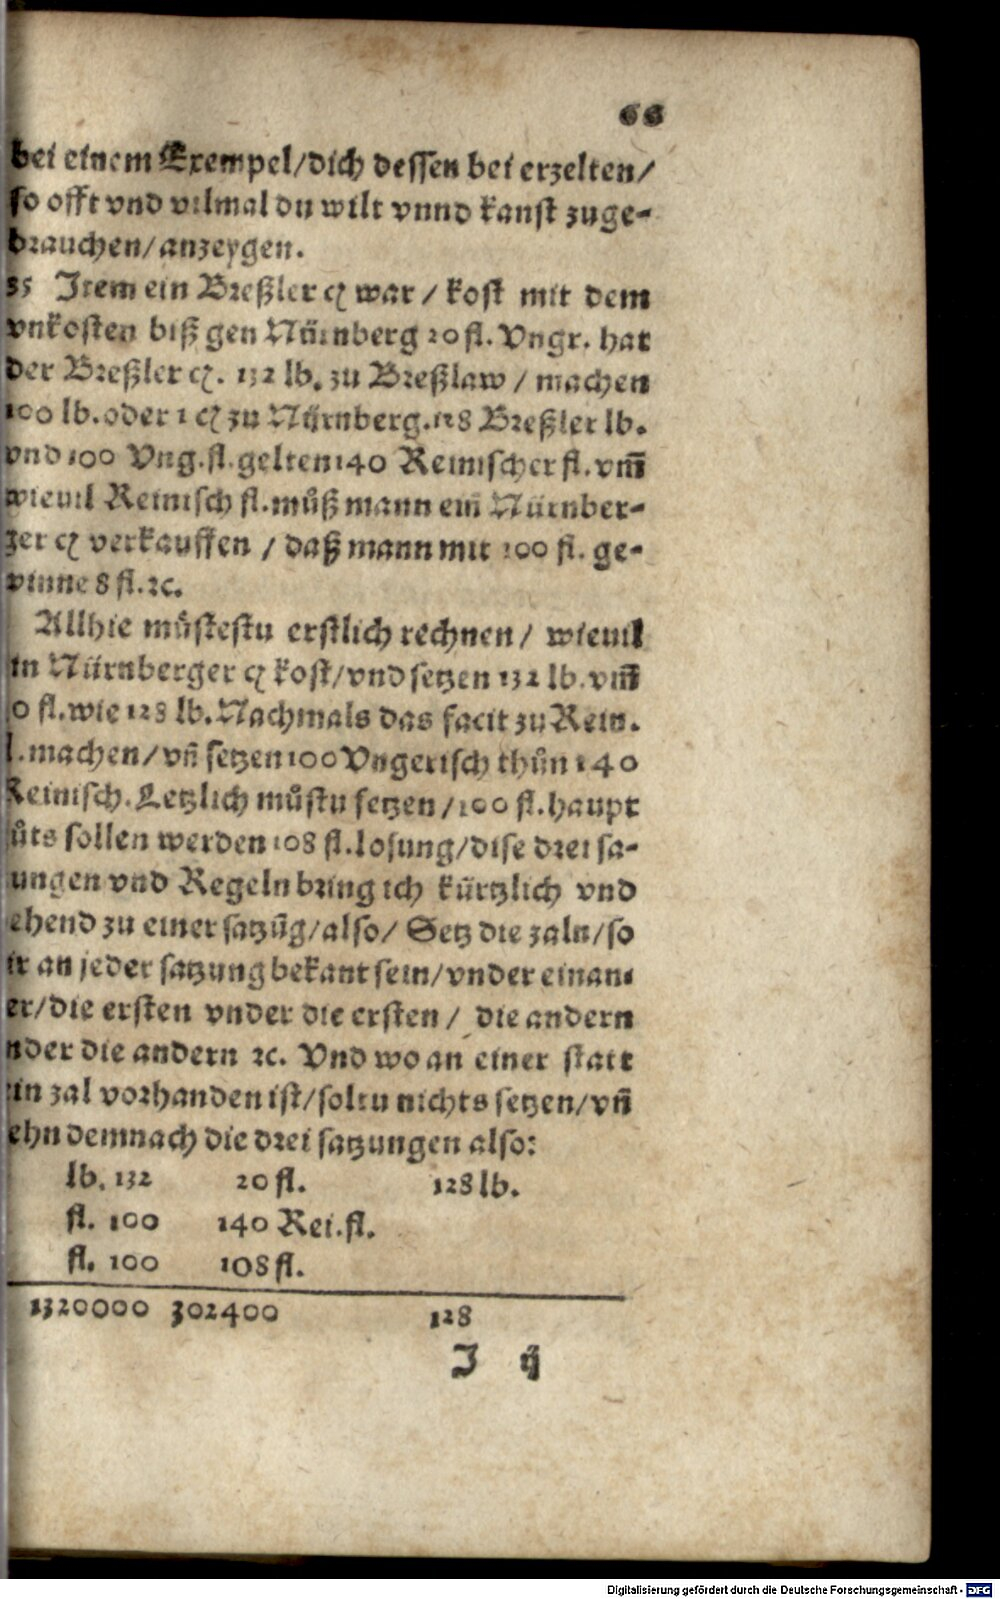 66
bei einem Exempel/dich dessen bei erzelten/
so offt vnd vilmal du wilt vnnd kanst zuge-
brauchen/anzeygen.
35 Item ein Breßler cꝫ war / kost mit dem
vnkosten biß gen Nürnberg 20 fl. Vngr. hat
der Breßler cꝫ. 132 lb. zu Breßlaw / machen
100 lb. oder 1 cꝫ zu Nürnberg. 128 Breßler lb.
vnd 100 Vng. fl. gelten 140 Reinischer fl. vm̄
wieuil Reinisch fl. muͦß mann ein Nürnber-
ger cꝫ verkauffen / daß mann mit 100 fl. ge-
winne 8 fl. ꝛc.
Allhie muͤstestu erstlich rechnen / wieuil
in Nürnberger cꝫ kost/vnd setzen 132 lb. vm̄
0 fl. wie 128 lb. Nachmals das facit zu Rein.
l. machen/vn̄ setzen 100 Vngerisch thuͦn 140
Reinisch. Letzlich muͦstu setzen /100 fl. haupt
uͦts sollen werden 108 fl. losung/dise drei sa-
ungen vnd Regeln bring ich kürtzlich vnd
ehend zu einer satzūg/also/ Setz die zaln/so
ir an jeder satzung bekant sein/vnder einan-
er/die ersten vnder die ersten / die andern
nder die andern ꝛc. Vnd wo an einer statt
ein zal vorhanden ist/soltu nichts setzen/vn̄
ehn demnach die drei satzungen also:
lb. 132 20 fl. 128 lb.
fl. 100 140 Rei. fl.
fl. 100 108 fl.
1320000 302400 128
J ij
Digitalisierung gefördert durch die Deutsche Forschungsgemeinschaft - DFG